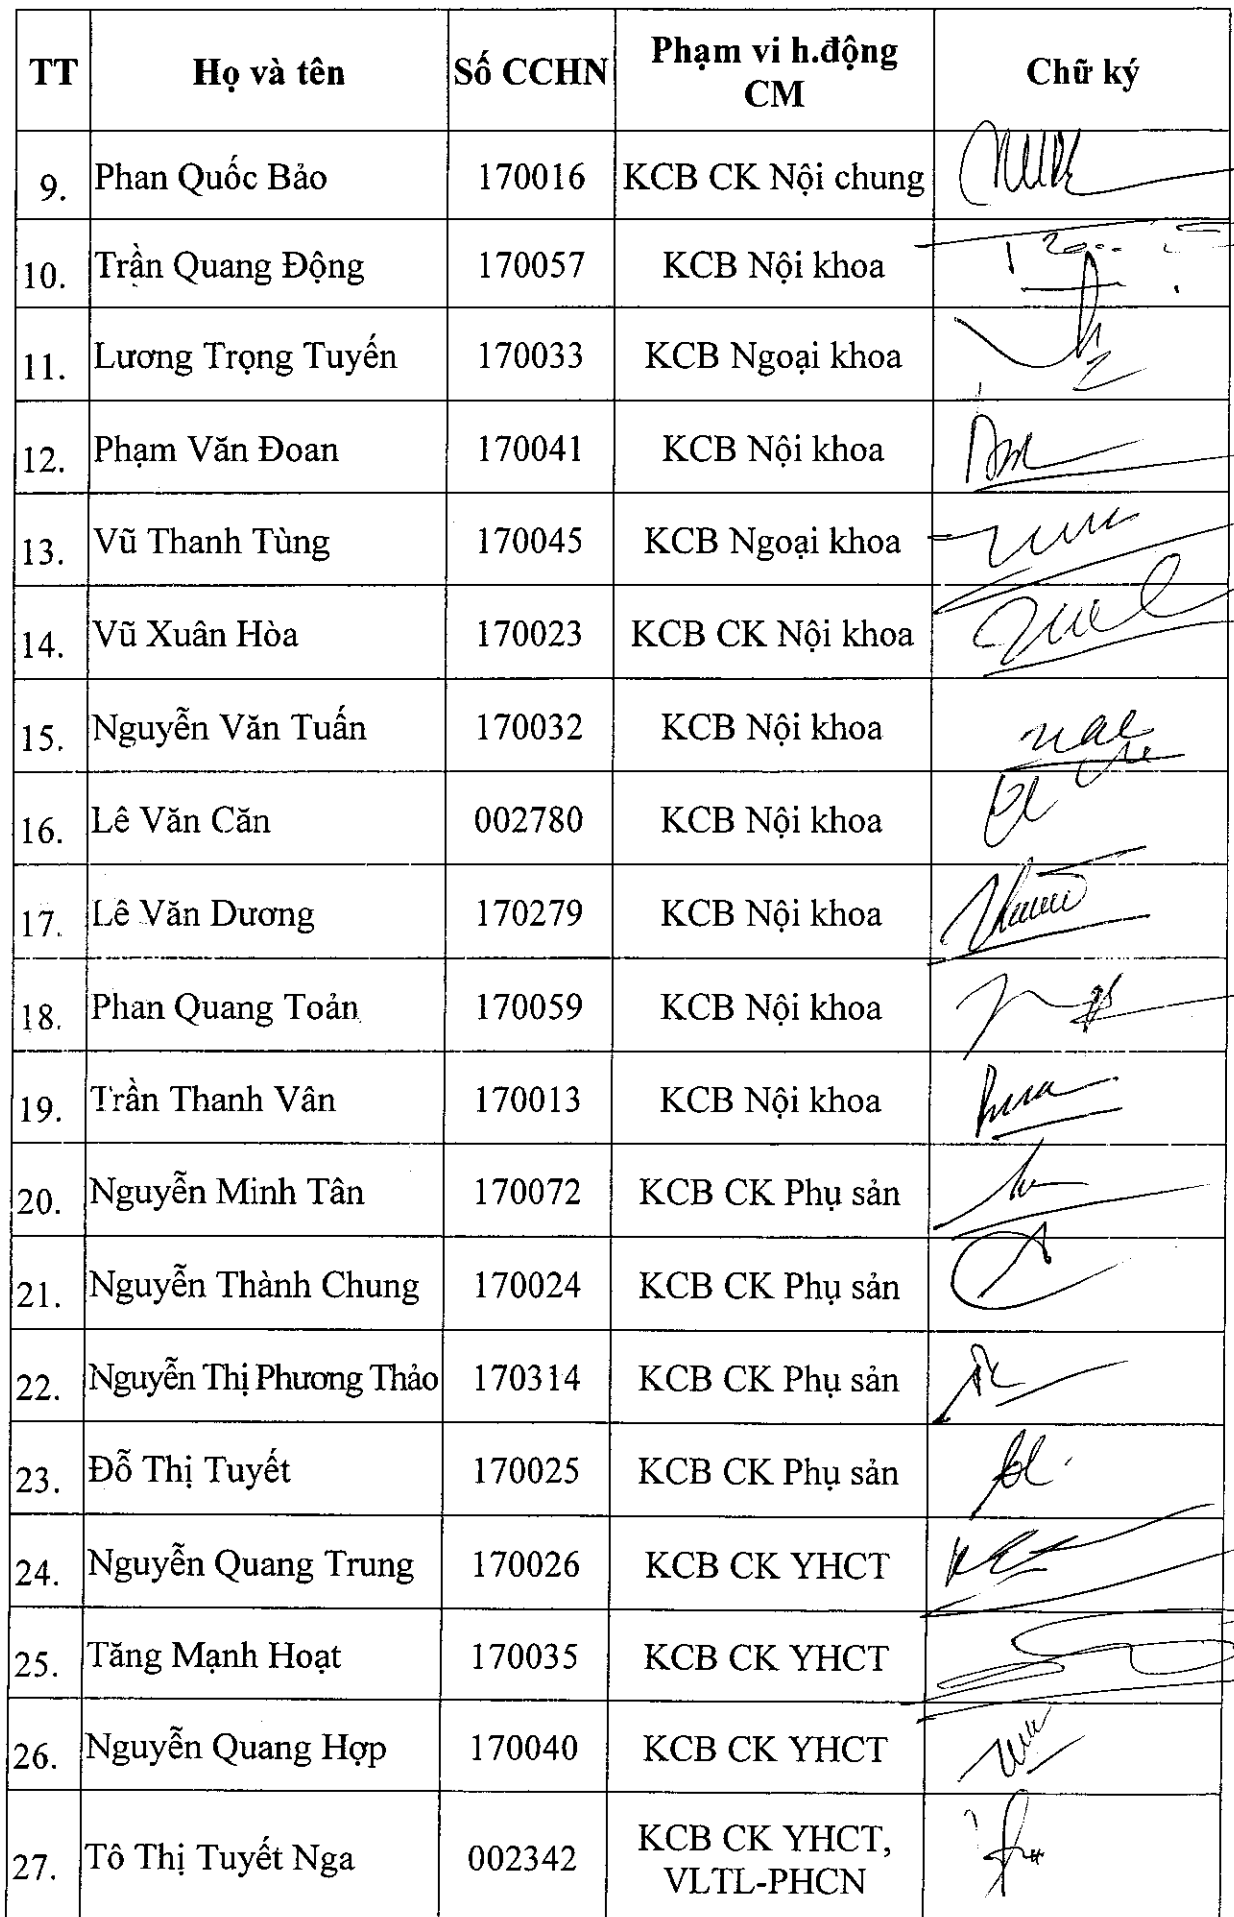 TT Họ và tên Số CCHN Phạm vi h.động CM Chữ ký
9. Phan Quốc Bảo 170016 KCB CK Nội chung
10. Trần Quang Động 170057 KCB Nội khoa
11. Lương Trọng Tuyến 170033 KCB Ngoại khoa
12. Phạm Văn Đoan 170041 KCB Nội khoa
13. Vũ Thanh Tùng 170045 KCB Ngoại khoa
14. Vũ Xuân Hòa 170023 KCB CK Nội khoa
15. Nguyễn Văn Tuấn 170032 KCB Nội khoa
16. Lê Văn Căn 002780 KCB Nội khoa
17. Lê Văn Dương 170279 KCB Nội khoa
18. Phan Quang Toản 170059 KCB Nội khoa
19. Trần Thanh Vân 170013 KCB Nội khoa
20. Nguyễn Minh Tân 170072 KCB CK Phụ sản
21. Nguyễn Thành Chung 170024 KCB CK Phụ sản
22. Nguyễn Thị Phương Thảo 170314 KCB CK Phụ sản
23. Đỗ Thị Tuyết 170025 KCB CK Phụ sản
24. Nguyễn Quang Trung 170026 KCB CK YHCT
25. Tăng Mạnh Hoạt 170035 KCB CK YHCT
26. Nguyễn Quang Hợp 170040 KCB CK YHCT
27. Tô Thị Tuyết Nga 002342 KCB CK YHCT, VLTL-PHCN